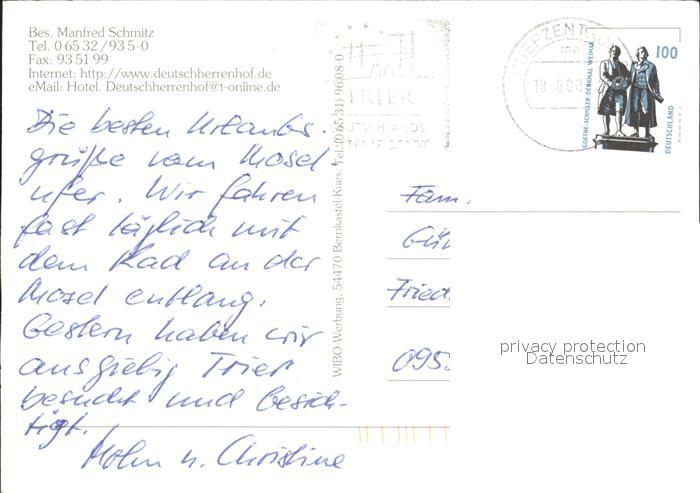 Bes. Manfred Schmitz
Tel. 0 65 32 / 93 5-0
Fax: 93 51 99
Internet: http://www.deutschherrenhof.de
eMail: Hotel. Deutschherrenhof@t-online.de
Die besten Urlaubs-
grüße vom Mosel
ufer. Wir fahren
fast täglich mit
dem Rad an der
Mosel entlang.
Gestern haben wir
ausgiebig Trier
besucht und besich-
tigt.
u. Christine
WIBO-Werbung, 54470 Bernkastel-Kues, Tel. (0 65 31) 96 08-0
TRIER
BRIEFZENTRUM
GOETHE-SCHILLER-DENKMAL WEIMAR
100
DEUTSCHLAND
Fam.
Gün
Fried
095
privacy protection
Datenschutz